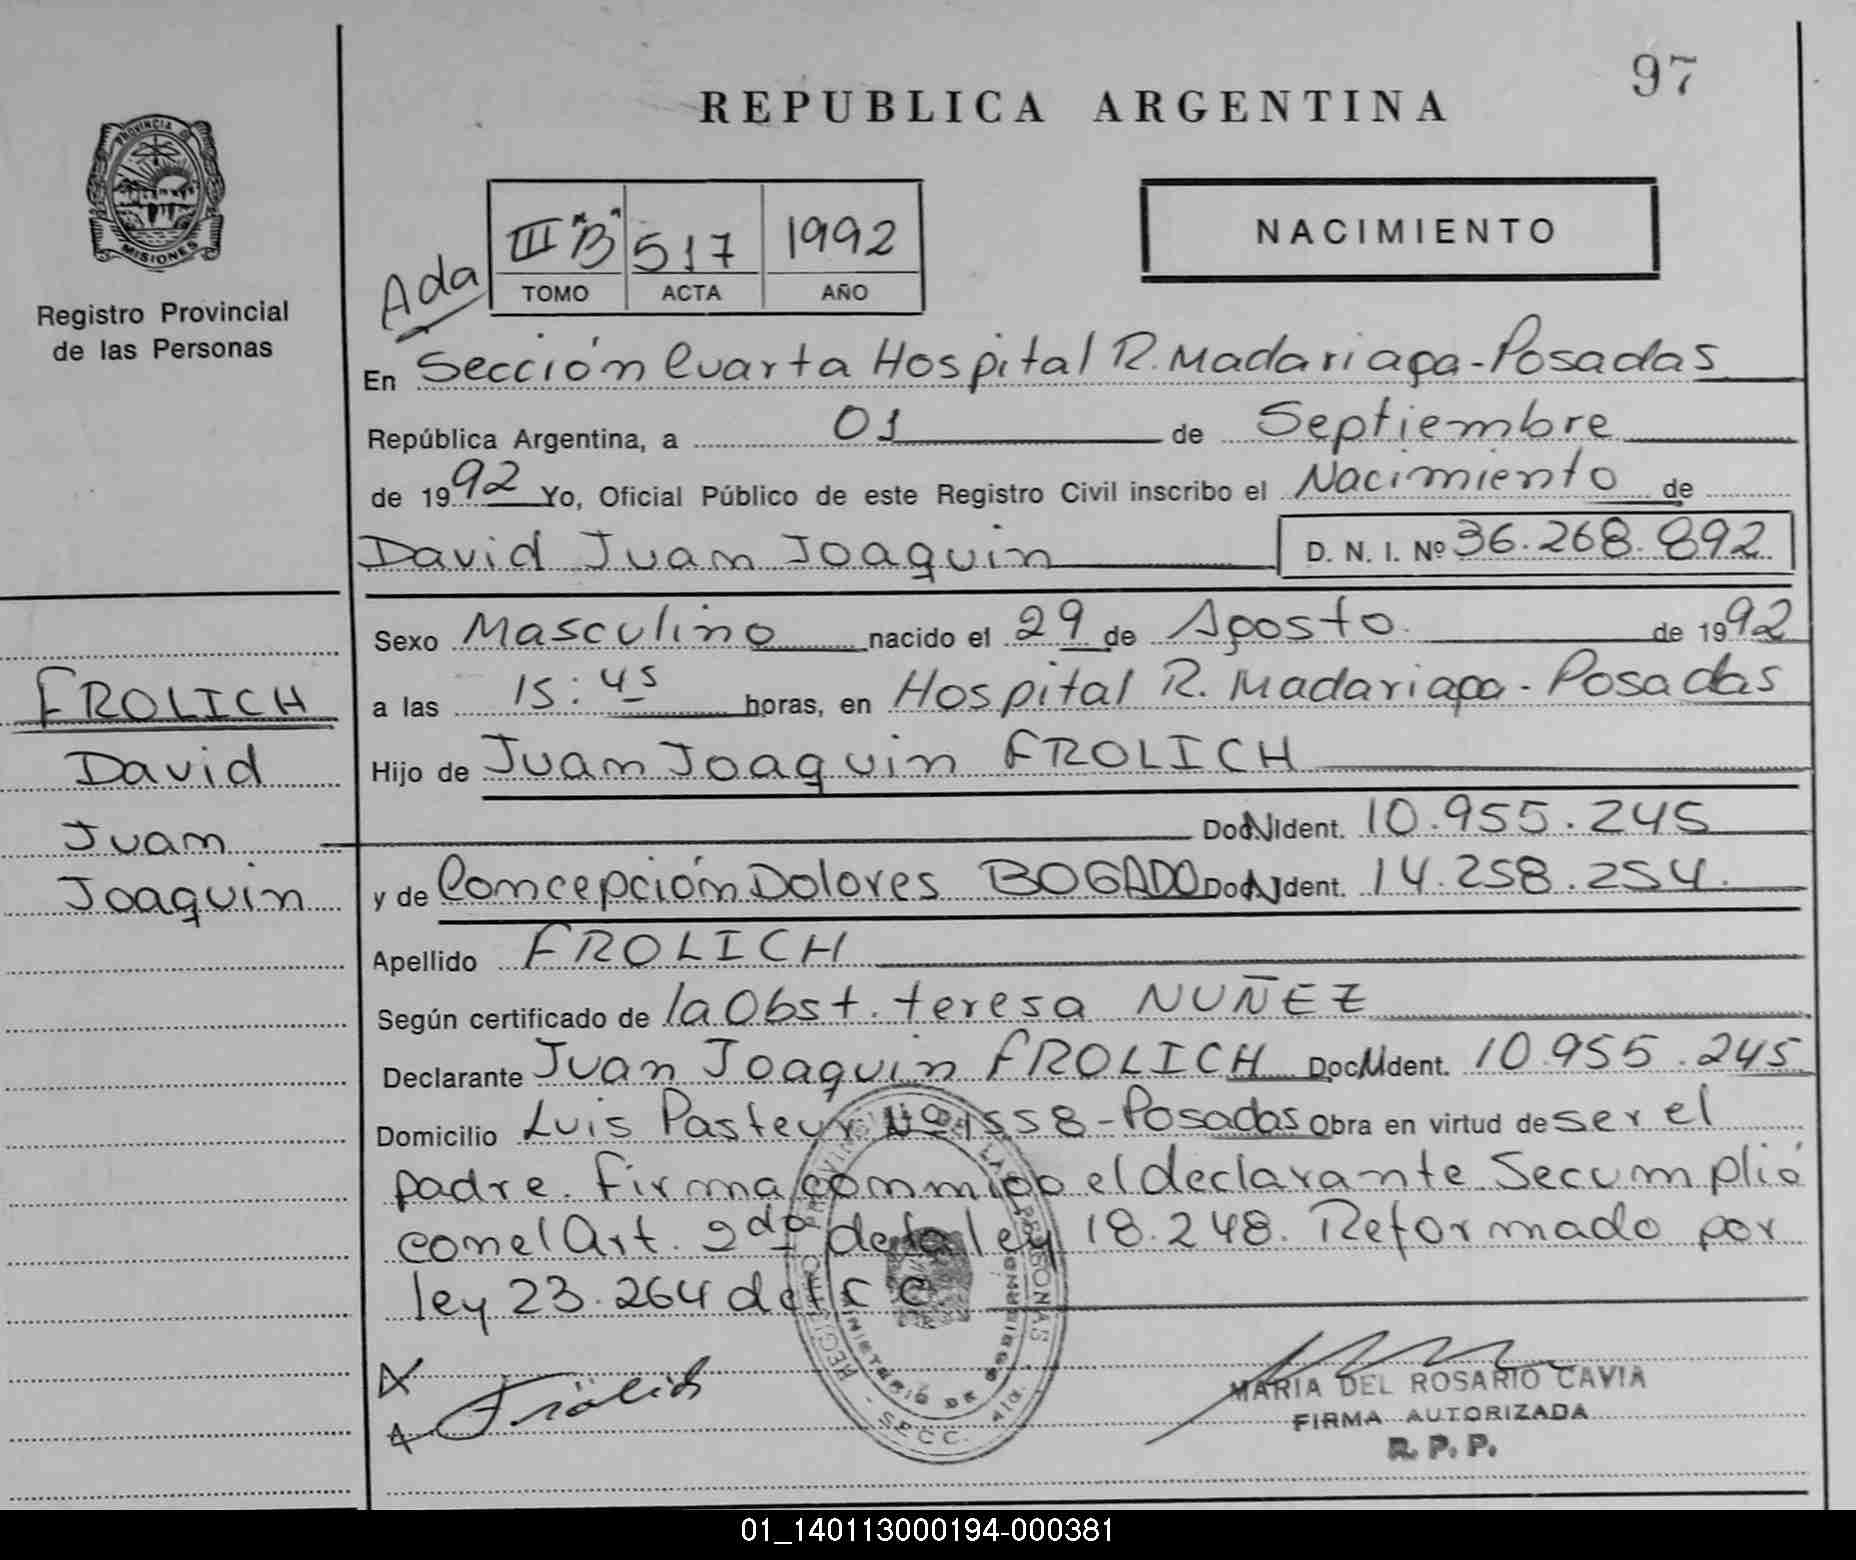 97
REPUBLICA ARGENTINA
PROVINCIA DE MISIONES
Registro Provincial
de las Personas
Ada
III "B" 517 1992
TOMO ACTA AÑO
NACIMIENTO
En Sección Cuarta Hospital R. Madariaga - Posadas
República Argentina, a 01 de Septiembre
de 1992 Yo, Oficial Público de este Registro Civil inscribo el Nacimiento de
David Juan Joaquin D. N. I. Nº 36.268.892
Sexo Masculino nacido el 29 de Agosto. de 1992
a las 15:45 horas, en Hospital R. Madariaga - Posadas
Hijo de Juan Joaquin FROLICH
DocNIdent. 10.955.245
y de Concepción Dolores BOGADO DocNIdent. 14.258.254.
Apellido FROLICH
Según certificado de la Obst. teresa NUÑEZ
Declarante Juan Joaquin FROLICH DocNIdent. 10.955.245
Domicilio Luis Pasteur Nº 1558 - Posadas Obra en virtud de ser el
padre. Firma conmigo el declarante Se cumplió
con el Art. 2do de la ley 18.248. Reformado por
ley 23.264 del C C
FROLICH
David
Juan
Joaquin
Frölich
REGISTRO PROVINCIAL DE LAS PERSONAS
MINISTERIO DE GOBIERNO
SECC. 4ta.
MARIA DEL ROSARIO CAVIA
FIRMA AUTORIZADA
R. P. P.
01_140113000194-000381